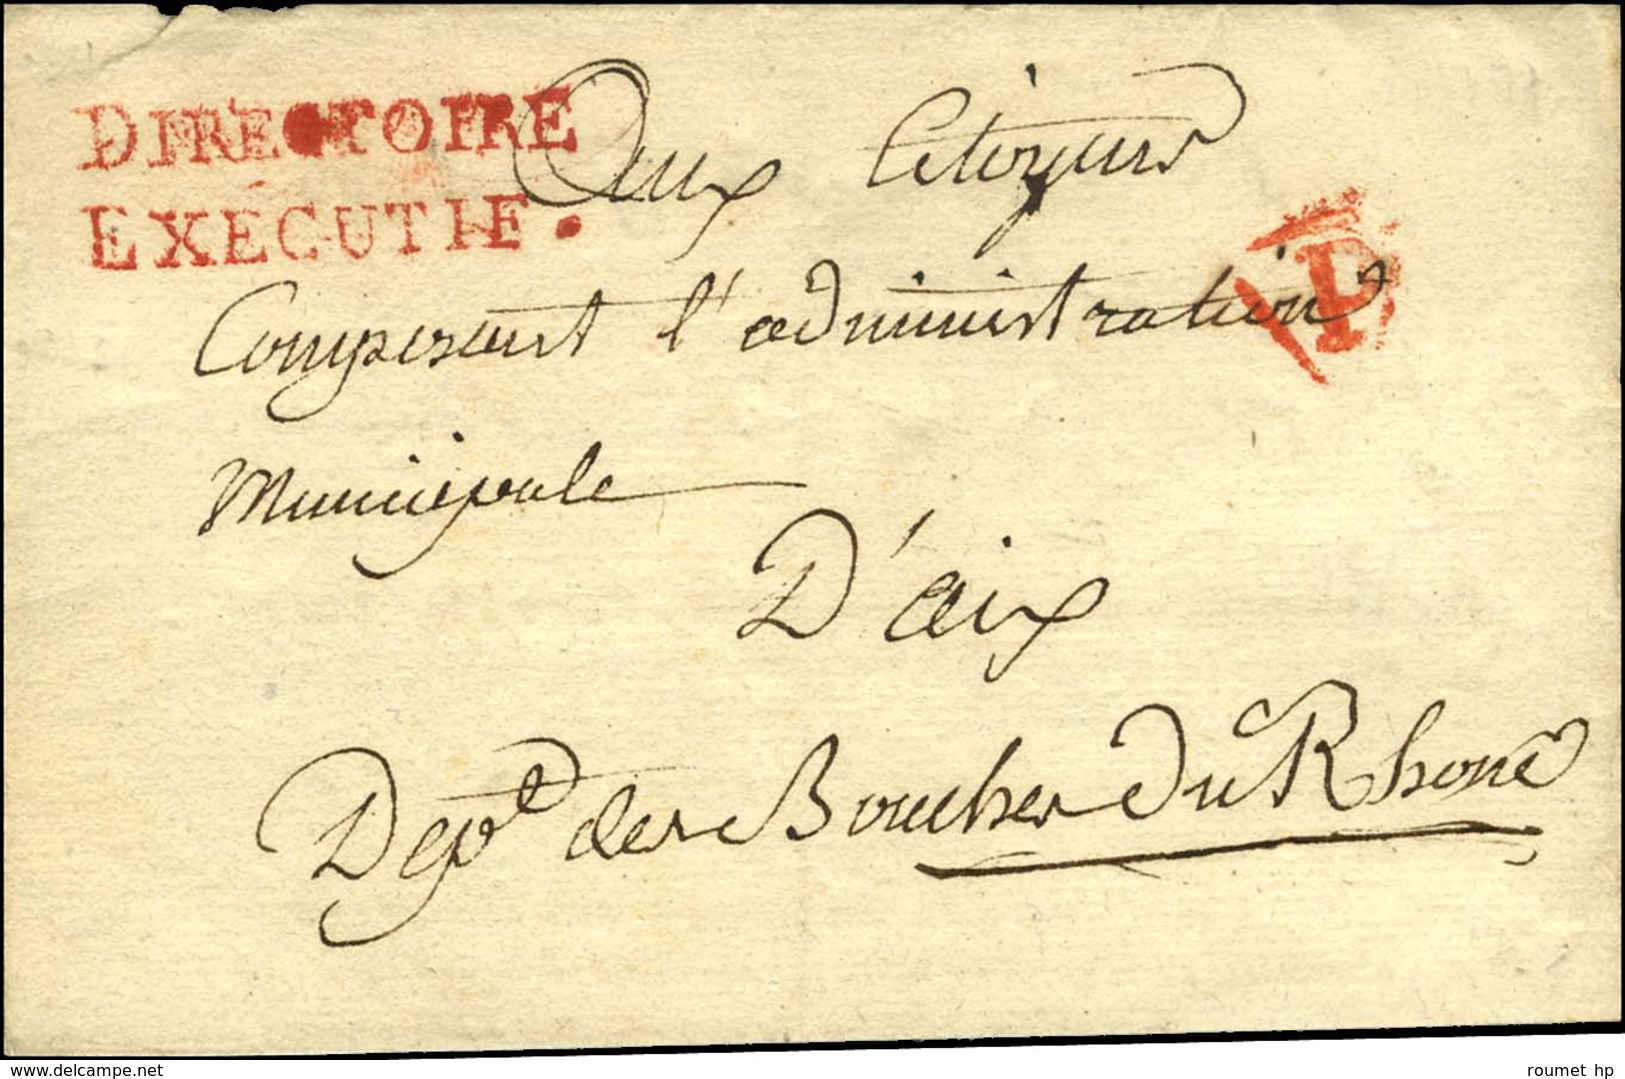 DIRECTOIRE
EXÉCUTIF.
Aux Citoyens
Composant l'administration
P
Municipale
D'aix
Dept des Bouches Du Rhone
roumet hp